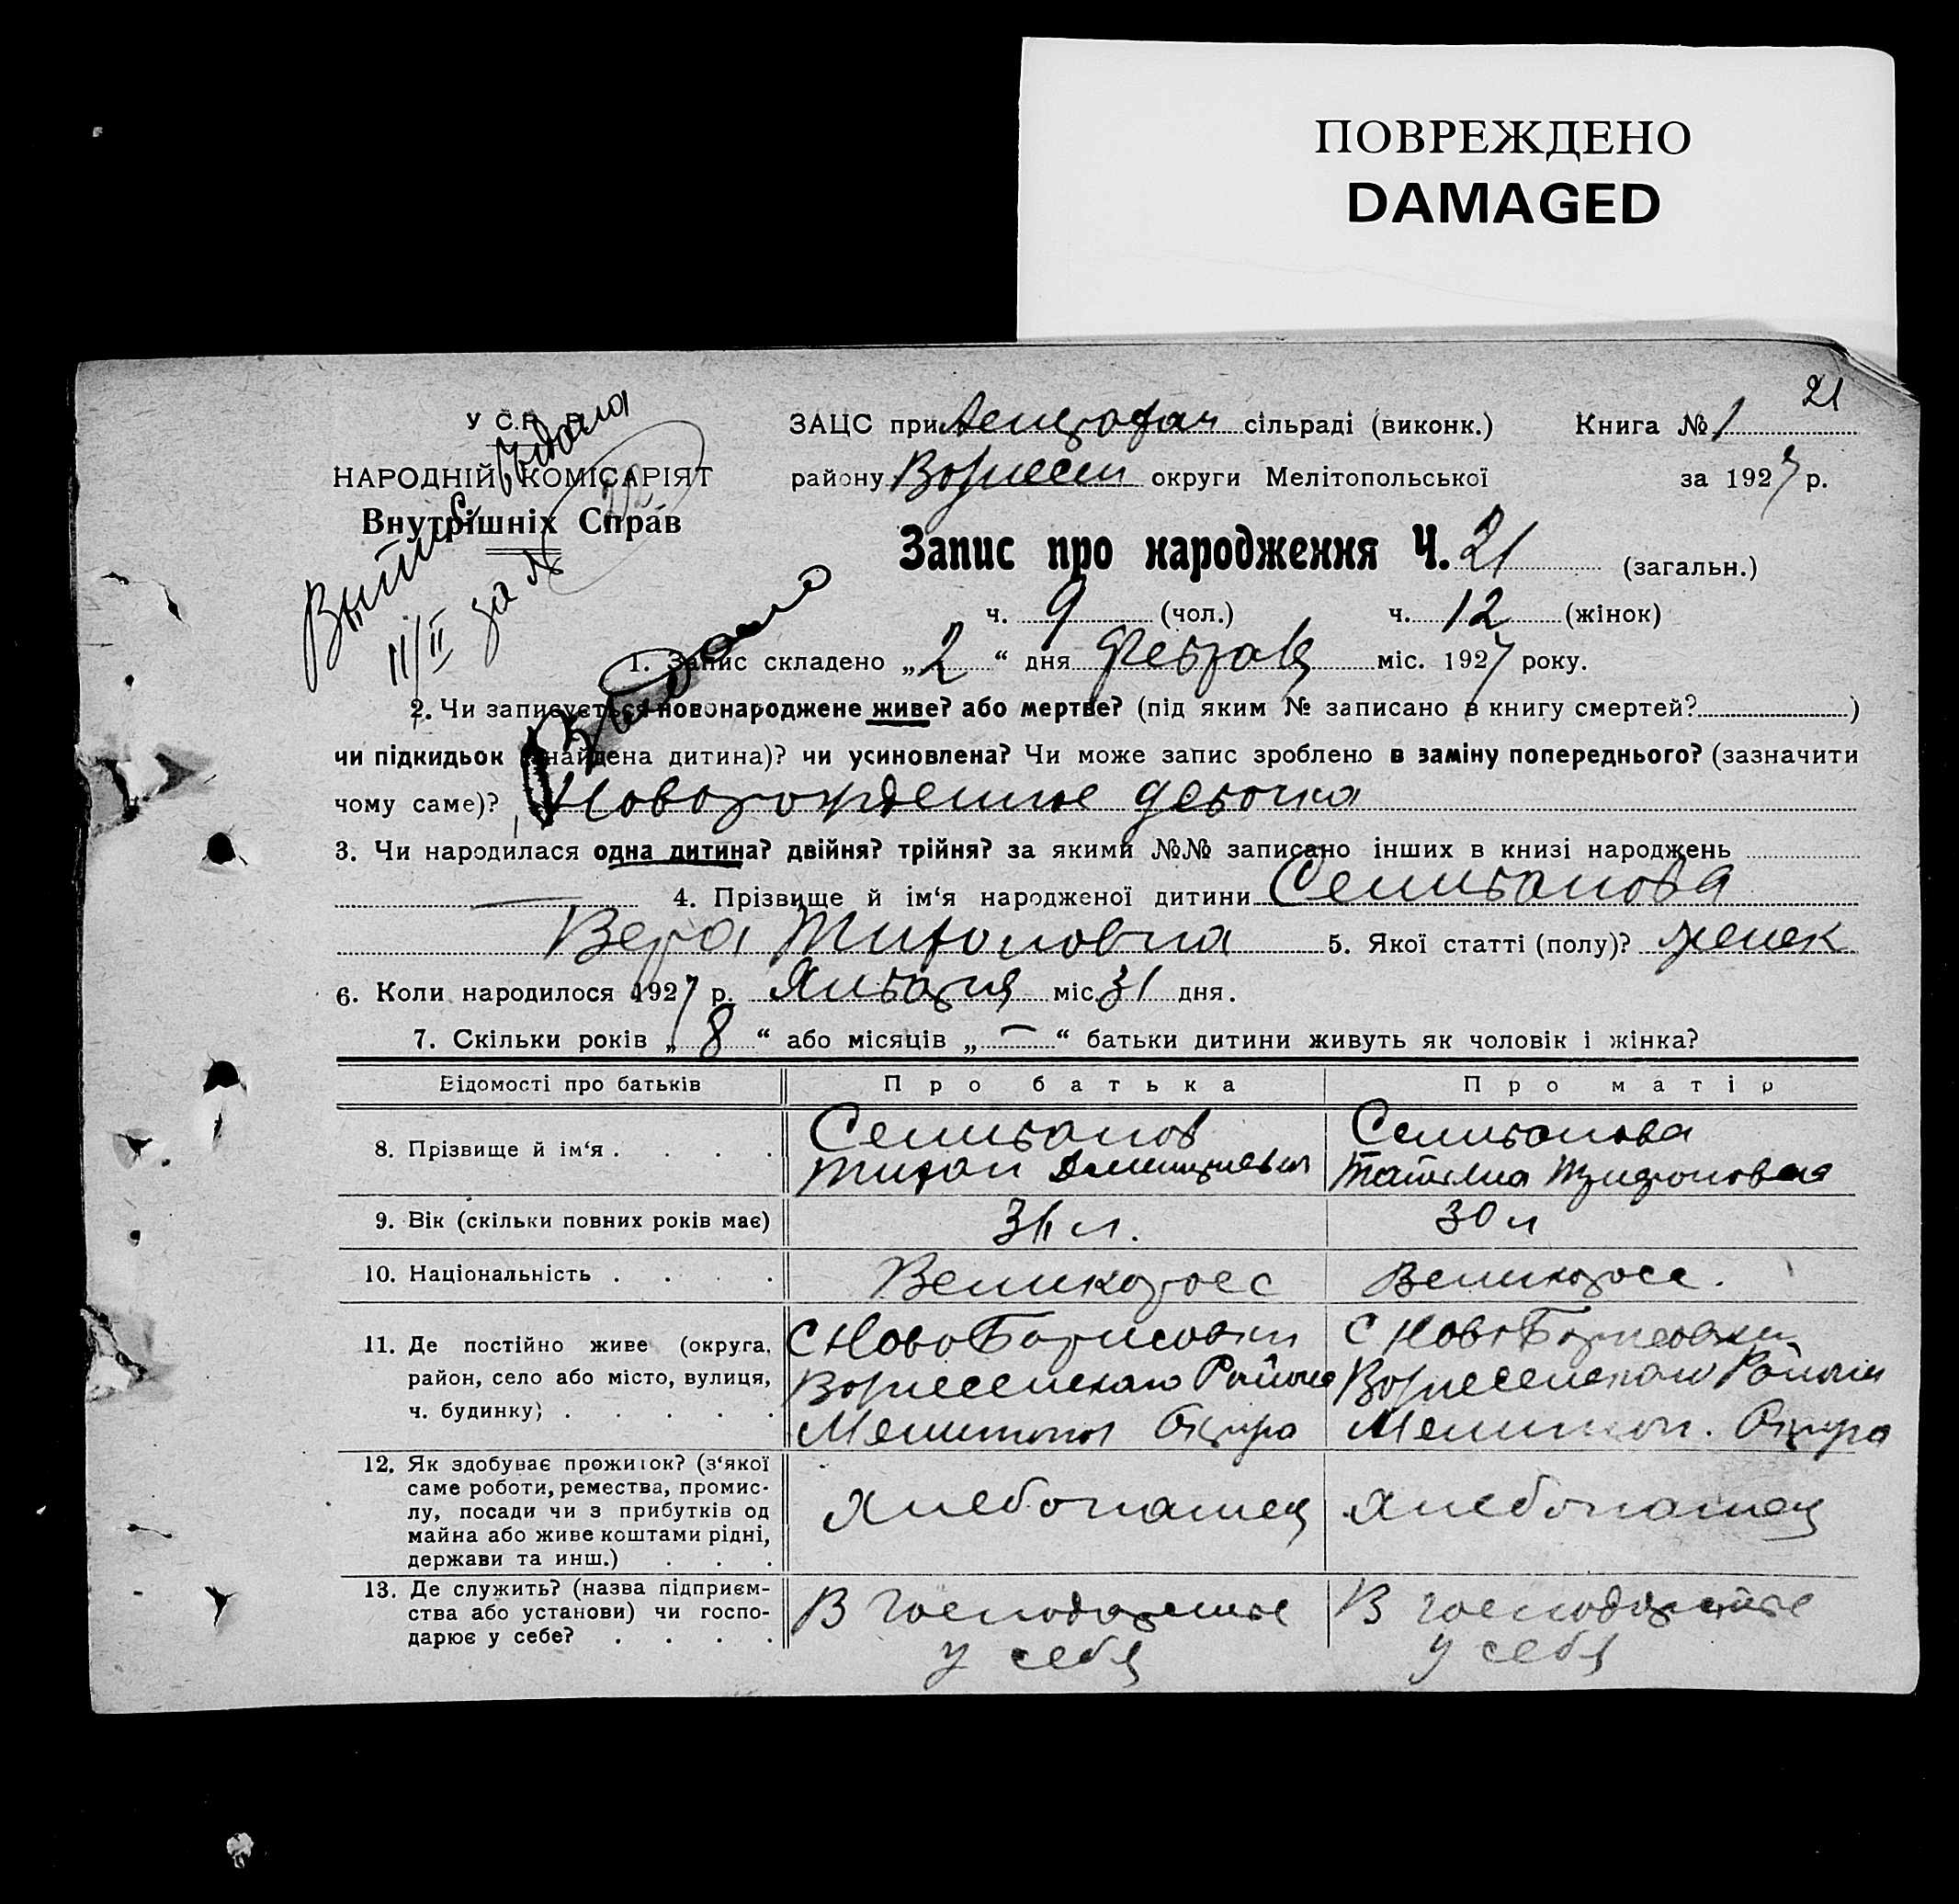 ПОВРЕЖДЕНО
DAMAGED
21
У С.Р.Р.
НАРОДНІЙ КОМІСАРІЯТ
Внутрішніх Справ
Выпись выдана
11/II за №
Выдано
ЗАЦС при сільраді (виконк.) Книга № 1
району Вознесен округи Мелітопольської за 1927 р.
Запис про народження Ч. 21 (загальн.)
ч. 9 (чол.) ч. 12 (жінок)
1. Запис складено „2“ дня Февраля міс. 1927 року.
2. Чи записується новонароджене живе? або мертве? (під яким № записано в книгу смертей? )
чи підкидьок (знайдена дитина)? чи усиновлена? Чи може запис зроблено в заміну попереднього? (зазначити
чому саме)? Новорожденное девочка
3. Чи народилася одна дитина? двійня? трійня? за якими №№ записано інших в книзі народжень
— 4. Прізвище й ім‘я народженої дитини Селиванова
Вера Тихоновна 5. Якої статті (полу)? женск
6. Коли народилося 1927 р. Января міс. 31 дня.
7. Скільки років „8“ або місяців „—“ батьки дитини живуть як чоловік і жінка?
Відомості про батьків Про батька Про матір
8. Прізвище й ім‘я . . . . Селиванов Селиванова
Тихон Татьяна Трифоновна
9. Вік (скільки повних років має) л. 30 л
10. Національність . . . . Великоросс Великоросс.
11. Де постійно живе (округа, С Ново Борисовки С Ново Борисовки
район, село або місто, вулиця, Вознесенскаго Района Вознесенскаго Района
ч. будинку) . . . . . Мелитопол Округа Мелитоп. Округа
12. Як здобуває прожиток? (з‘якої
саме роботи, ремества, промис-
лу, посади чи з прибутків од Хлебопашец Хлебопашец
майна або живе коштами рідні,
держави та инш.) . . .
13. Де служить? (назва підприєм-
ства або установи) чи госпо- В В
дарює у себе? . . . . у себя у себя